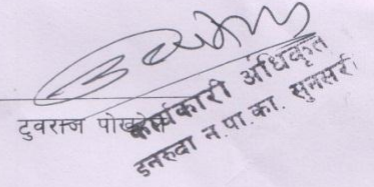 टुवराज पोखरेल
कार्यकारी अधिकृत
इनरुवा न.पा.का. सुनसरी